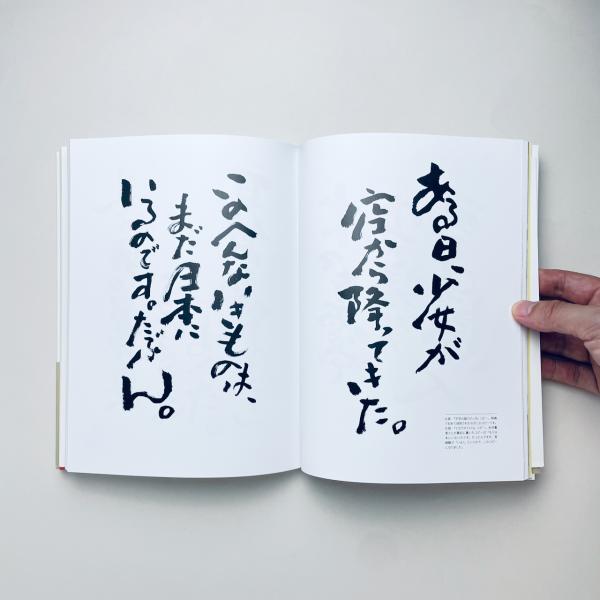 ある日、少女が
空から降ってきた。
このへんないきものは、
まだ日本に
いるのです。たぶん。